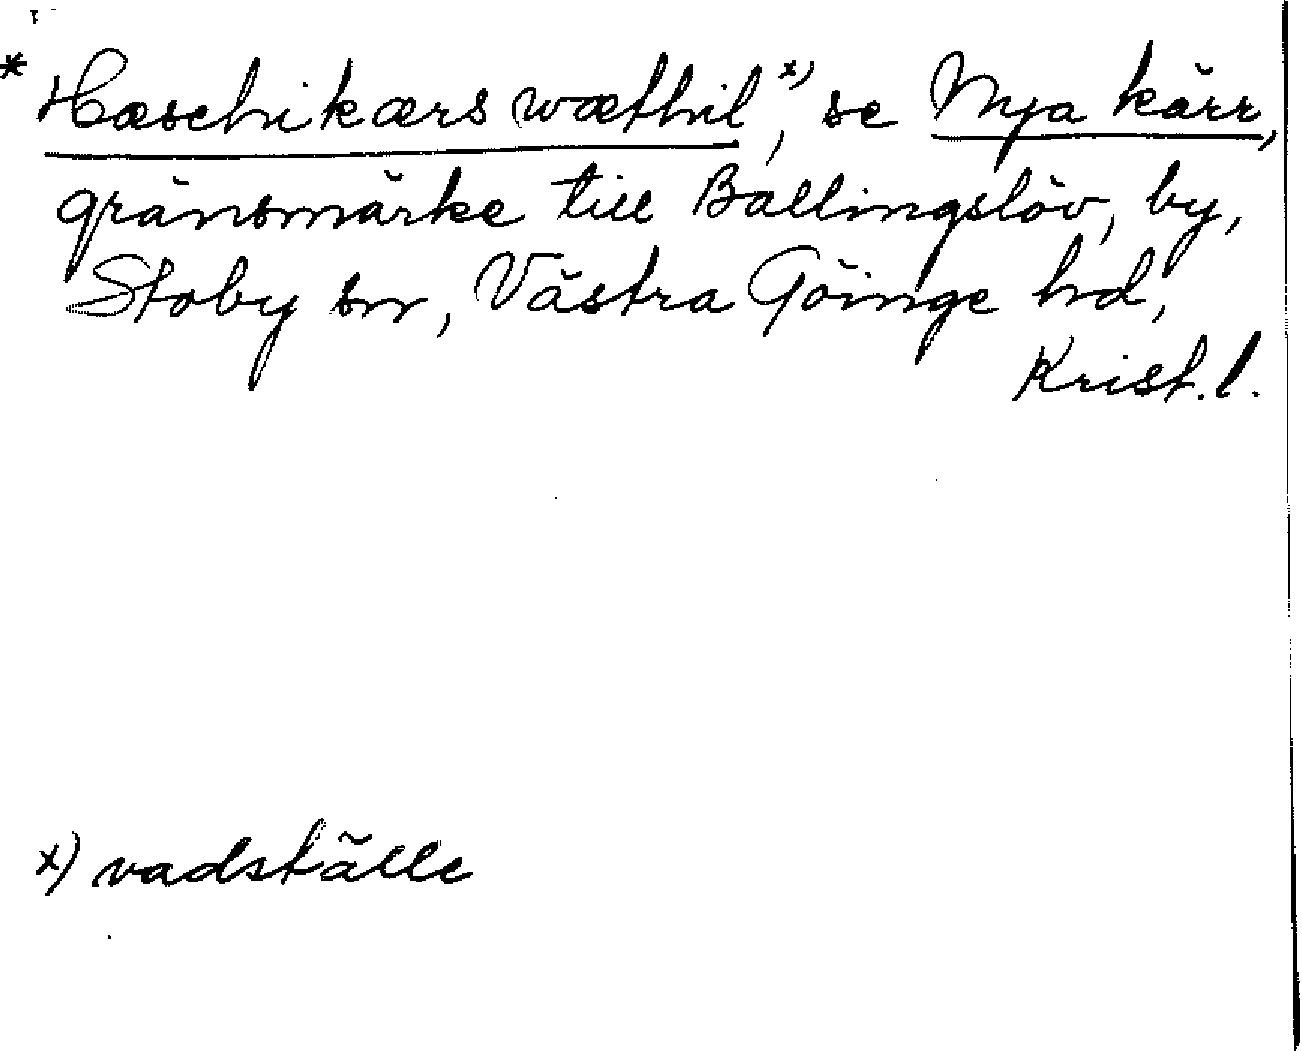 * Hæschikærs wæthil,ˣ⁾ se Mya kärr,
gränsmärke till Ballingslöv, by,
Stoby sn, Västra Göinge hd,
Krist. l.
x) vadställe